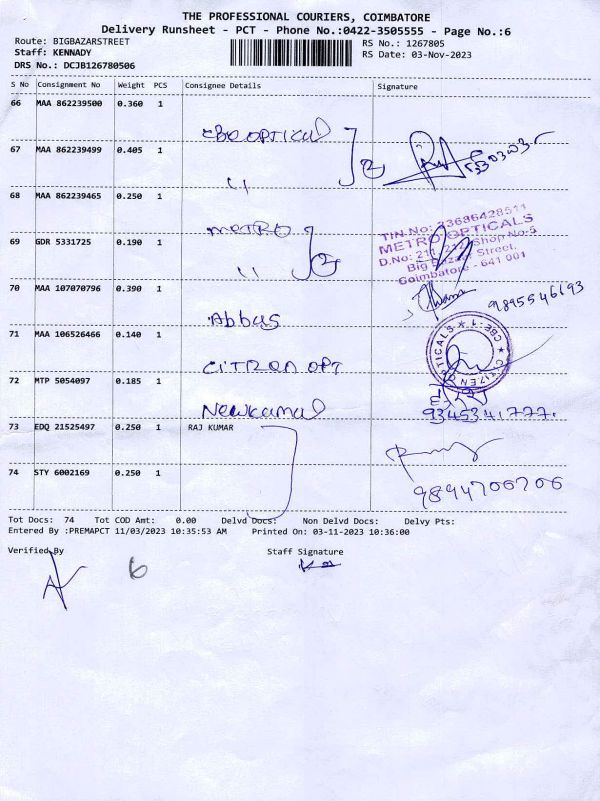 THE PROFESSIONAL COURIERS, COIMBATORE
Delivery Runsheet - PCT - Phone No.:0422-3505555 - Page No.:6
Route: BIGBAZARSTREET
Staff: KENNADY
DRS No.: DCJB126780506
RS No.: 1267805
RS Date: 03-Nov-2023
S No Consignment No Weight PCS Consignee Details Signature
66 MAA 862239500 0.360 1
OPTICAL
67 MAA 862239499 0.405 1
"
68 MAA 862239465 0.250 1
METRO
69 GDR 5331725 0.190 1
"
TIN.No: 23686428511
METRO OPTICALS
D.No: 211, 212, Shop No-5
Big Bazaar Street,
Coimbatore - 641 001
70 MAA 107070796 0.390 1
Abbas
9895546193
71 MAA 106526466 0.140 1
CITIZEN OPT
CITIZEN OPTICALS ★ CBE-1 ★
72 MTP 5054097 0.185 1
Newkamal
9345341777.
73 EDQ 21525497 0.250 1 RAJ KUMAR
74 STY 6002169 0.250 1
9894706206
Tot Docs: 74 Tot COD Amt: 0.00 Delvd Docs: Non Delvd Docs: Delvy Pts:
Entered By :PREMAPCT 11/03/2023 10:35:53 AM Printed On: 03-11-2023 10:36:00
Verified By Staff Signature
6